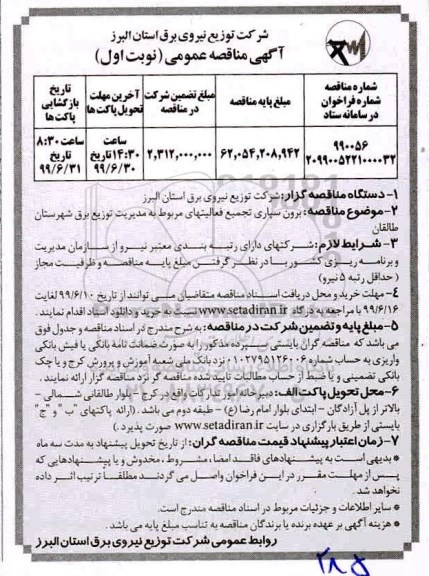 شرکت توزیع نیروی برق استان البرز
آگهی مناقصه عمومی (نوبت اول)
شماره مناقصه شماره فراخوان در سامانه ستاد | مبلغ پایه مناقصه | مبلغ تضمین شرکت در مناقصه | آخرین مهلت تحویل پاکت ها | تاریخ بازگشایی پاکت ها
۹۹۰۰۵۶ ۲۰۹۹۰۰۵۲۲۱۰۰۰۰۳۲ | ۶۲,۰۵۴,۲۰۸,۹۴۲ | ۲,۳۱۲,۰۰۰,۰۰۰ | ساعت ۱۴:۳۰ تاریخ ۹۹/۶/۳۰ | ساعت ۸:۳۰ تاریخ ۹۹/۶/۳۱
۱- دستگاه مناقصه گزار: شرکت توزیع نیروی برق استان البرز
۲- موضوع مناقصه: برون سپاری تجمیع فعالیتهای مربوط به مدیریت توزیع برق شهرستان
طالقان
۳- شرایط لازم: شرکتهای دارای رتبه بندی معتبر نیرو از سازمان مدیریت
و برنامه ریزی کشور با در نظر گرفتن مبلغ پایه مناقصه و ظرفیت مجاز
(حداقل رتبه ۵ نیرو)
۴- مهلت خرید و محل دریافت اسناد مناقصه متقاضیان می توانند از تاریخ ۹۹/۶/۱۰ لغایت
۹۹/۶/۱۶ با مراجعه به درگاه www.setadiran.ir نسبت به خرید و دانلود اسناد اقدام نمایند.
۵- مبلغ پایه و تضمین شرکت در مناقصه: به شرح مندرج در اسناد مناقصه و جدول فوق
می باشد که مناقصه گران بایستی سپرده مذکور را به صورت ضمانت نامه بانکی یا فیش بانکی
واریزی به حساب شماره ۰۱۰۲۷۹۵۱۲۶۰۰۶ نزد بانک ملی شعبه آموزش و پرورش کرج و یا چک
بانکی تضمینی و یا ضبط از حساب مطالبات تایید شده مناقصه گر نزد مناقصه گزار ارائه نمایند.
۶- محل تحویل پاکت الف: دبیرخانه امور تدارکات واقع در کرج - بلوار طالقانی شمالی -
بالاتر از پل آزادگان - ابتدای بلوار امام رضا (ع) - طبقه دوم می باشد. (ارائه پاکتهای "ب" و "ج"
بایستی از طریق بارگزاری در سایت www.setadiran.ir صورت پذیرد.)
۷- زمان اعتبار پیشنهاد قیمت مناقصه گران: از تاریخ تحویل پیشنهاد به مدت سه ماه
* بدیهی است به پیشنهادهای فاقد امضاء، مشروط، مخدوش و یا پیشنهادهایی که
پس از مهلت مقرر در این فراخوان واصل می گردند مطلقا ترتیب اثر داده
نخواهد شد.
* سایر اطلاعات و جزئیات مربوط در اسناد مناقصه مندرج است.
* هزینه آگهی بر عهده برنده یا برندگان مناقصه به تناسب مبلغ پایه می باشد.
روابط عمومی شرکت توزیع نیروی برق استان البرز